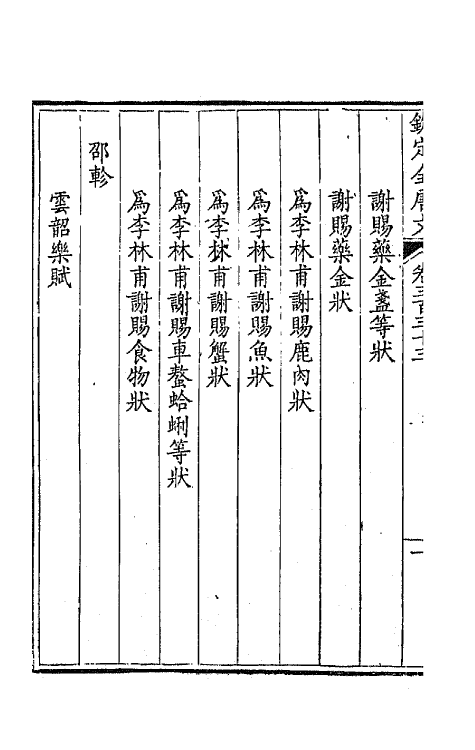 欽定全唐文 卷三百三十三 一
謝賜藥金盞等狀
謝賜藥金狀
爲李林甫謝賜鹿肉狀
爲李林甫謝賜魚狀
爲李林甫謝賜蟹狀
爲李林甫謝賜車螯蛤蜊等狀
爲李林甫謝賜食物狀
邵軫
雲韶樂賦